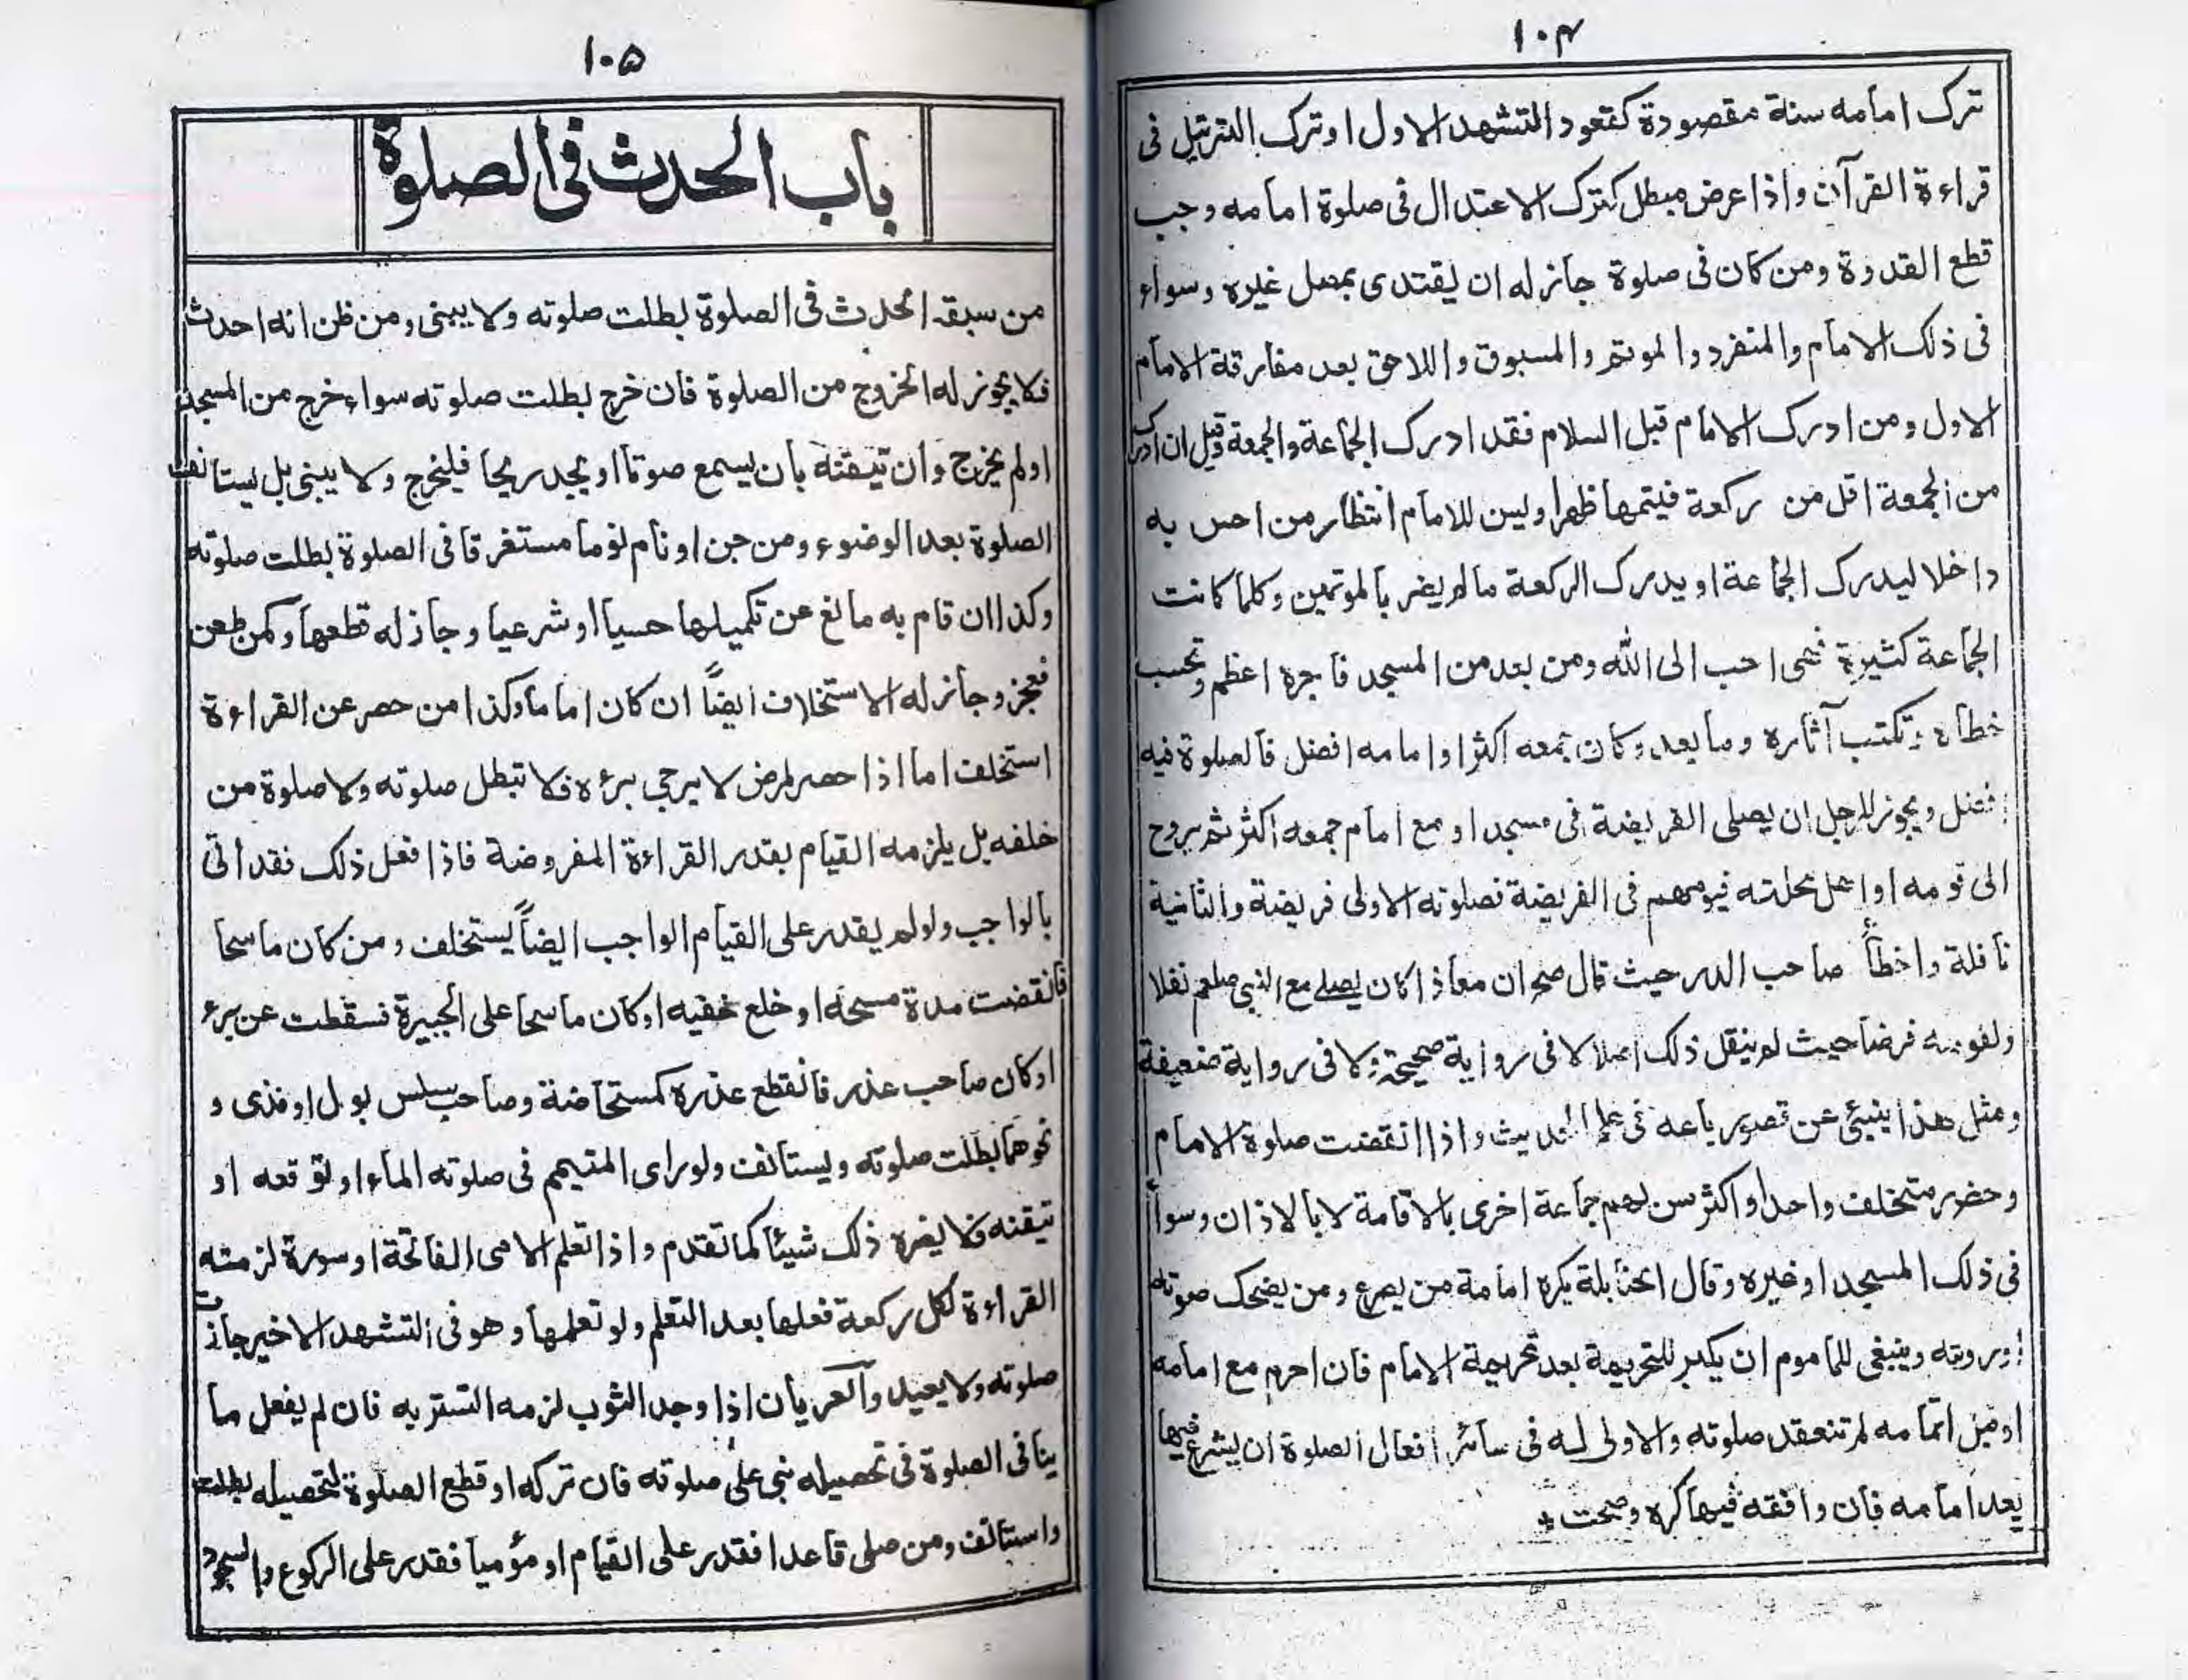 ١٠٤
ترك امامه سنة مقصودة كقعود التشهد الاول او ترك الترتيل فى
قراءة القرآن واذا عرض مبطل كترك الاعتدال فى صلوة امامه وجب
قطع القدوة ومن كان فى صلوة جاز له ان يقتدى بمصل غيره وسواء
فى ذلك الامام والمنفرد والموتم والمسبوق واللاحق بعد مفارقة الامام
الاول ومن ادرك الامام قبل السلام فقد ادرك الجماعة والجمعة وقيل ان ادرك
من الجمعة اقل من ركعة فيتمها ظهرا وليس للامام انتظار من احس به
داخلا ليدرك الجماعة او يدرك الركعة ما لم يضر بالموتمين وكلما كانت
الجماعة كثيرة فهى احب الى الله ومن بعد من المسجد فاجره اعظم وتحسب
خطاه وتكتب آثاره وما بعد وكان جمعه اكثر او امامه افضل فالصلوة فيه
افضل ويجوز للرجل ان يصلى الفريضة فى مسجد او مع امام جمعه اكثر ثم يروح
الى قومه او اهل محلته فيومهم فى الفريضة فصلوته الاولى فريضة والثانية
نافلة واخطأ صاحب الدر حيث قال صح ان معاذا كان يصلے مع النبى صلعم نفلا
ولقومه فرضا حيث لم ينقل ذلك اصلا لا فى رواية صحيحة ولا فى رواية ضعيفة
ومثل هذا ينبئ عن قصور باعه فى علم الحديث واذا انقضت صلوة الامام
وحضر متخلف واحد او اكثر سن لهم جماعة اخرى بالاقامة لا بالاذان وسواء
فى ذلك المسجد او غيره وقال الحنابلة يكره امامة من يصرع ومن يضحك صوته
او رويته وينبغى للماموم ان يكبر للتحريمة بعد تحريمة الامام فان احرم مع امامه
او قبل اتمامه لم تنعقد صلوته والاولى له فى سائر افعال الصلوة ان يشرع فيها
بعد امامه فان وافقه فيها كره وصحت ٭
١٠٥
باب الحدث فى الصلوة
من سبقه الحدث فى الصلوة بطلت صلوته ولا يبنى ومن ظن انه احدث
فلا يجوز له الخروج من الصلوة فان خرج بطلت صلوته سواء خرج من المسجد
اولم يخرج وان تيقنه بان يسمع صوتا او يجد ريحا فليخرج ولا يبنى بل يستانف
الصلوة بعد الوضوء ومن جن او نام نوما مستغرقا فى الصلوة بطلت صلوته
وكذا ان قام به مانع عن تكميلها حسيا او شرعيا وجاز له قطعها وكمن طعن
فعجز وجاز له الاستخلاف ايضاً ان كان اماما وكذا من حصر عن القراءة
استخلف اما اذا حصر لمرض لا يرجى برءه فلا تبطل صلوته ولا صلوة من
خلفه بل يلزمه القيام بقدر القراءة المفروضة فاذا فعل ذلك فقد اتى
بالواجب ولو لم يقدر على القيام الواجب ايضاً يستخلف ومن كان ماسحا
فانقضت مدة مسحه او خلع خفيه او كان ماسحا على الجبيرة فسقطت عن برء
او كان صاحب عذر فانقطع عذره كمستحاضة وصاحب سلس بول او مذى و
نحوهما بطلت صلوته ويستانف ولو راى المتيمم فى صلوته الماء او توقعه او
تيقنه فلا يضره ذلك شيئا كما تقدم واذا تعلم الامى الفاتحة او سورة لزمته
القراءة لكل ركعة فعلها بعد التعلم ولو تعلمها وهو فى التشهد الاخير جازت
صلوته ولا يعيد والعريان اذا وجد الثوب لزمه التستر به فان لم يفعل ما
ينافى الصلوة فى تحصيله بنى على صلوته فان تركه او قطع الصلوة لتحصيله بطلت
واستانف ومن صلى قاعدا فقدر على القيام او مؤميا فقدر على الركوع والسجود